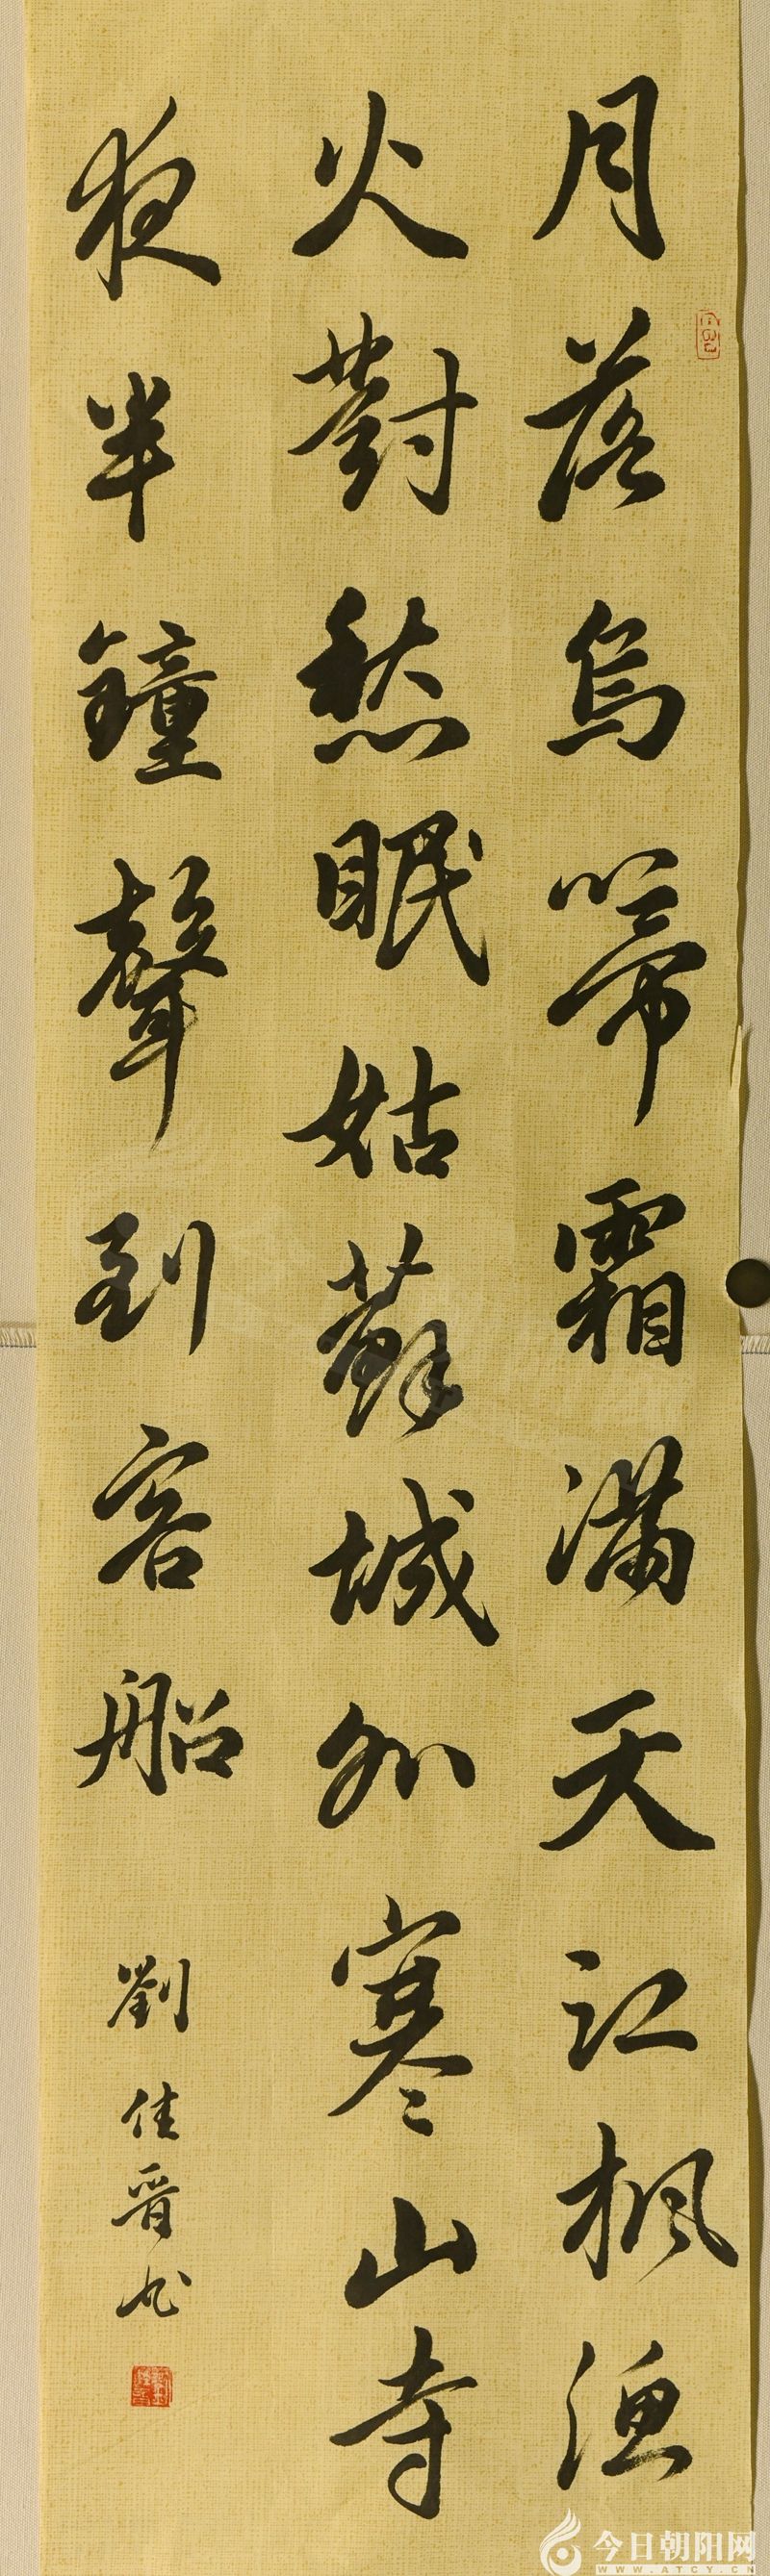 月落烏啼霜滿天江楓漁
火對愁眠姑蘇城外寒山寺
夜半鐘聲到客船
劉佳晋书
今日朝阳网
WWW.ATCY.CN